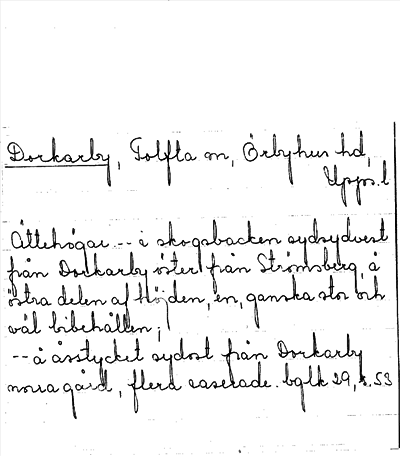 Dorkarby, Tolfta sn, Örbyhus hd,
Upps.l
Ättehögar -- i skogsbacken sydsydvest
från Dorkarby öster från Strömsberg, å
östra delen af höjden, en, ganska stor och
väl bibehållen;
-- å åsstycket sydost från Dorkarby
norra gård, flera raserade. bglk 29, s. 53